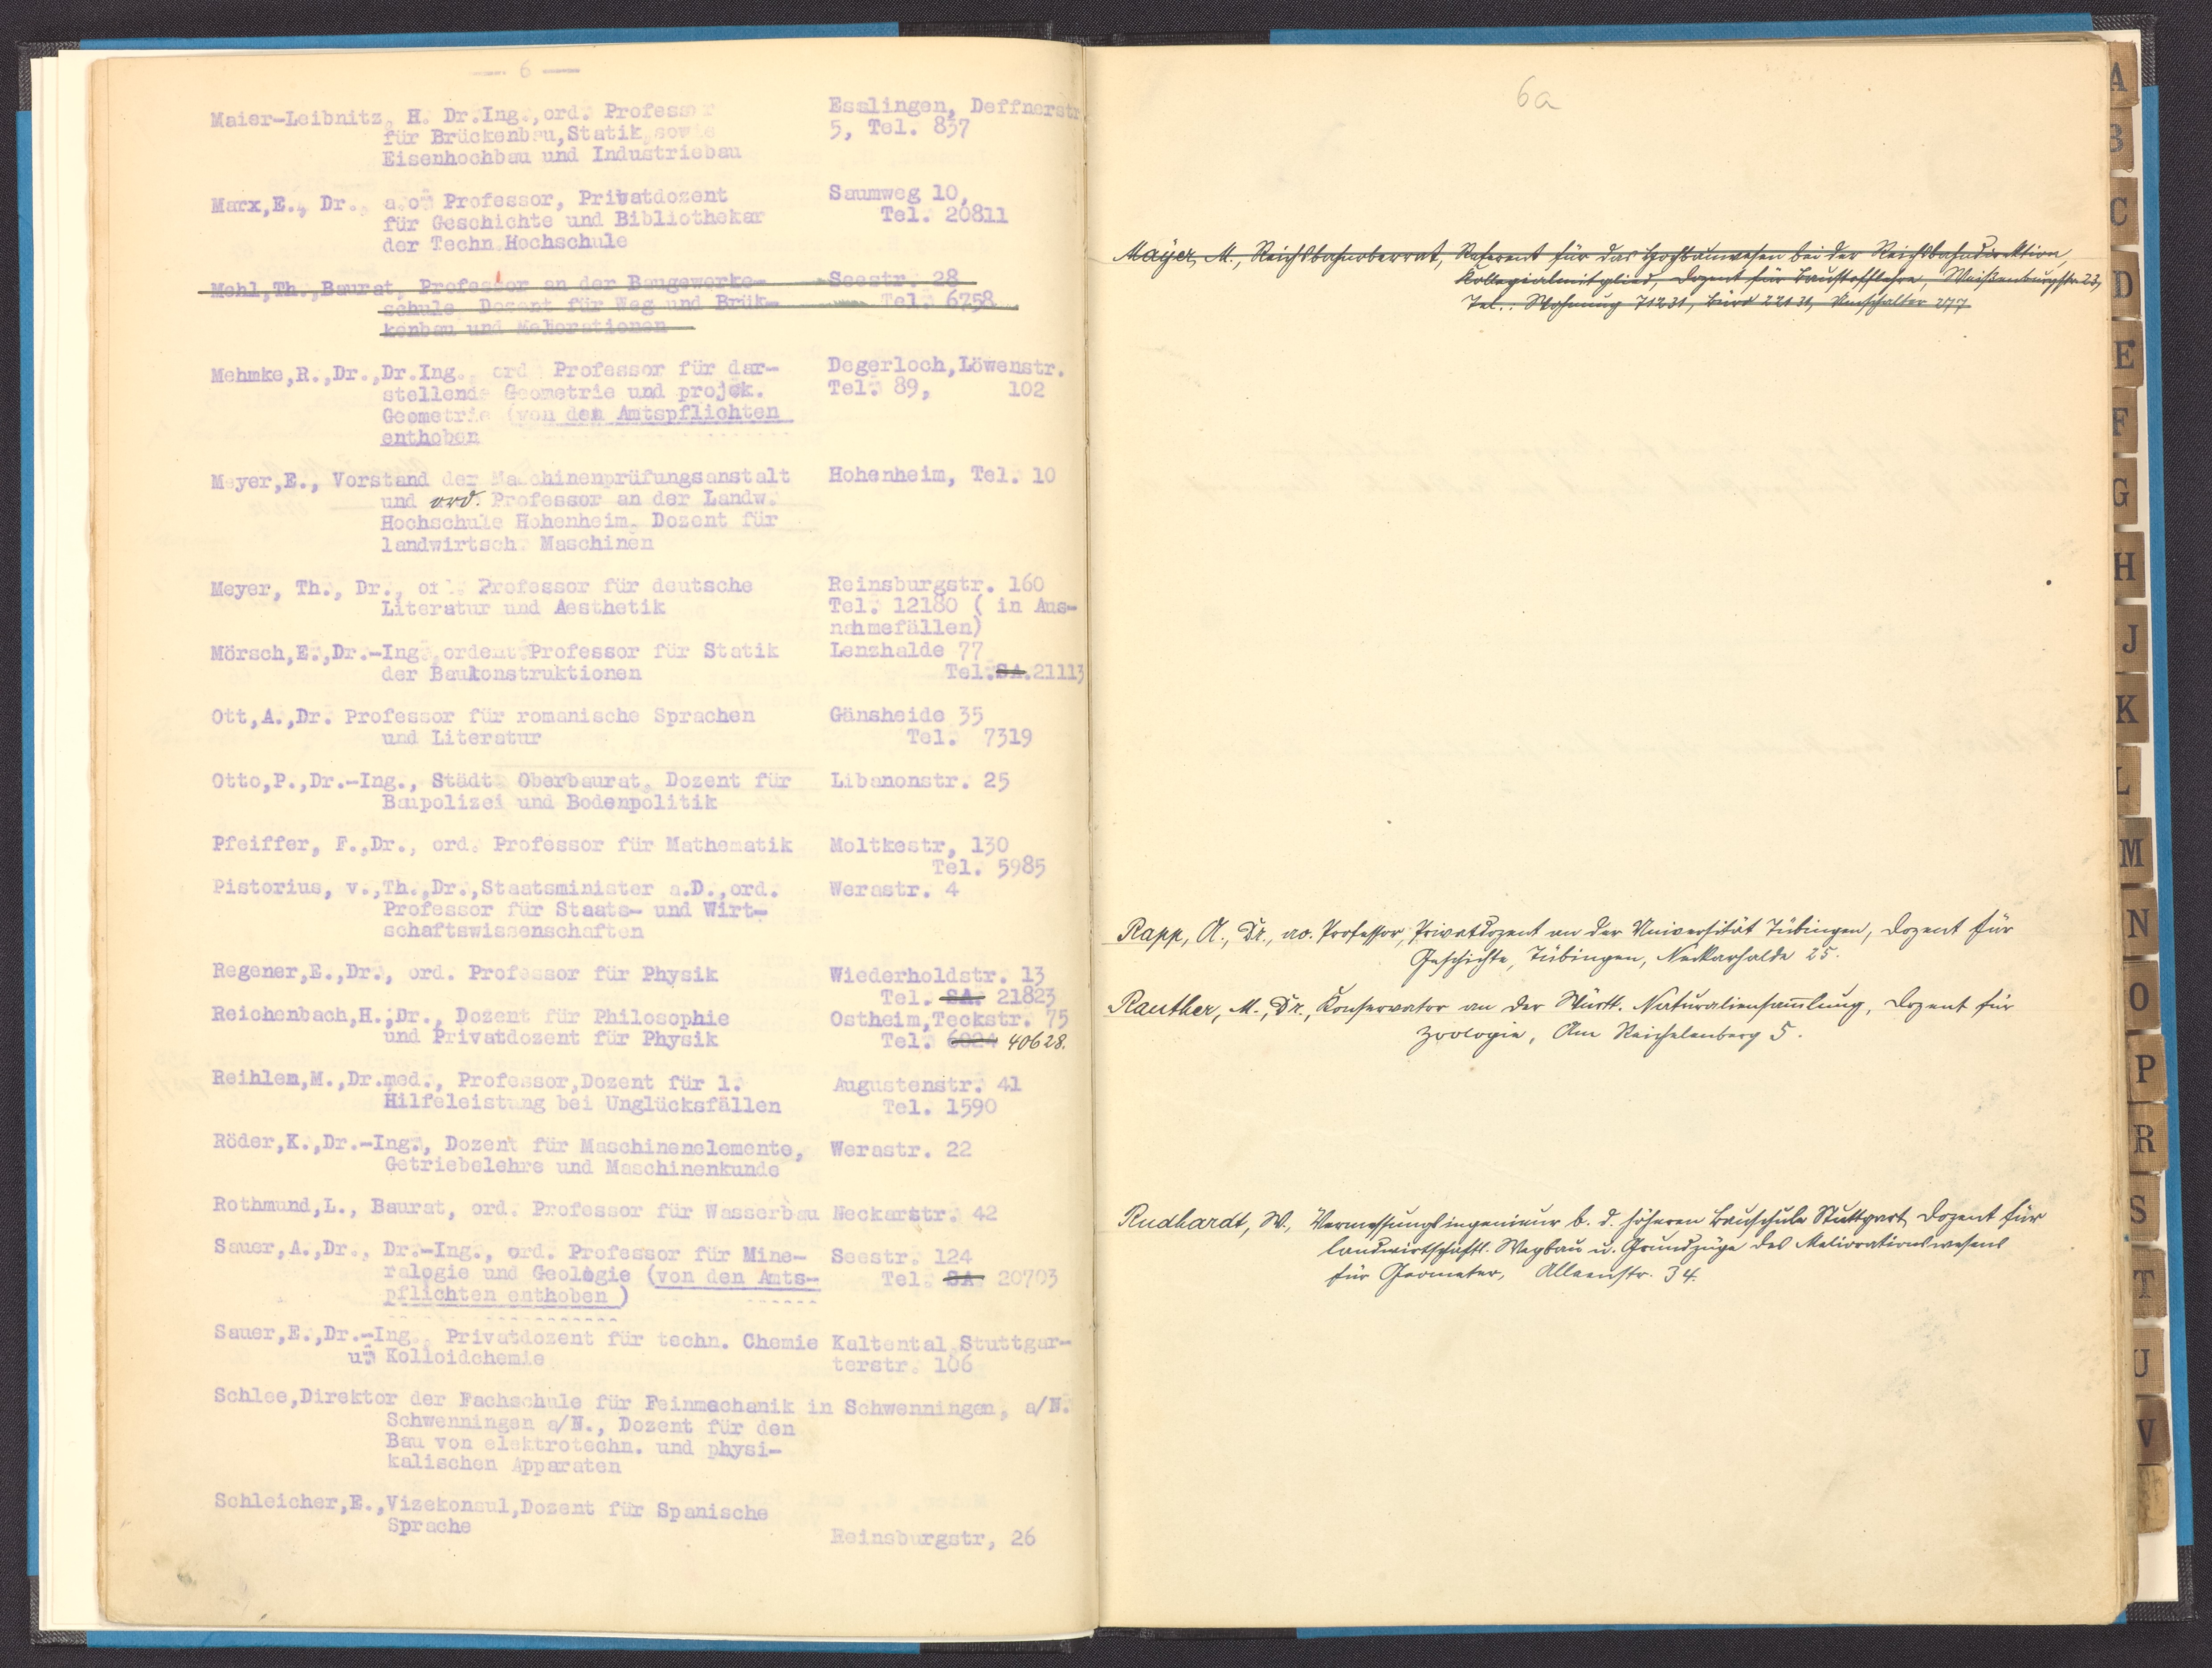 — 6 —
Maier-Leibnitz, H. Dr.Ing., ord. Professor Esslingen, Deffnerstr
für Brückenbau, Statik sowie 5, Tel. 837
Eisenhochbau und Industriebau
Marx,E., Dr., a.o. Professor, Privatdozent Saumweg 10,
für Geschichte und Bibliothekar Tel. 20811
der Techn.Hochschule
Mehl,Th.,Baurat, Professor an der Baugewerke- Seestr. 28
schule Dozent für Weg und Brük- Tel. 6758
kenbau und Meliorationen
Mehmke,R.,Dr.,Dr.Ing., ord. Professor für dar- Degerloch,Löwenstr.
stellende Geometrie und projek. Tel. 89, 102
Geometrie (von den Amtspflichten
enthoben
Meyer,E., Vorstand der Maschinenprüfungsanstalt Hohenheim, Tel. 10
und ord. Professor an der Landw.
Hochschule Hohenheim, Dozent für
landwirtsch. Maschinen
Meyer, Th., Dr., ord. Professor für deutsche Reinsburgstr. 160
Literatur und Aesthetik Tel. 12180 ( in Aus-
nahmefällen)
Mörsch,E.,Dr.-Ing.,ordent.Professor für Statik Lenzhalde 77
der Baukonstruktionen Tel.SA.21113
Ott,A.,Dr. Professor für romanische Sprachen Gänsheide 35
und Literatur Tel. 7319
Otto,P.,Dr.-Ing., Städt. Oberbaurat, Dozent für Libanonstr. 25
Baupolizei und Bodenpolitik
Pfeiffer, F.,Dr., ord. Professor für Mathematik Moltkestr, 130
Tel. 5985
Pistorius, v.,Th.,Dr.,Staatsminister a.D.,ord. Werastr. 4
Professor für Staats- und Wirt-
schaftswissenschaften
Regener,E.,Dr., ord. Professor für Physik Wiederholdstr. 13
Tel. SA. 21823
Reichenbach,H.,Dr., Dozent für Philosophie Ostheim,Teckstr. 75
und Privatdozent für Physik Tel. 6024 40628.
Reihlen,M.,Dr.med., Professor,Dozent für 1. Augustenstr. 41
Hilfeleistung bei Unglücksfällen Tel. 1590
Röder,K.,Dr.-Ing., Dozent für Maschinenelemente, Werastr. 22
Getriebelehre und Maschinenkunde
Rothmund,L., Baurat, ord. Professor für Wasserbau Neckarstr. 42
Sauer,A.,Dr., Dr.-Ing., ord. Professor für Mine- Seestr. 124
ralogie und Geologie (von den Amts- Tel. SA 20703
pflichten enthoben )
Sauer,E.,Dr.-Ing., Privatdozent für techn. Chemie Kaltental,Stuttgar-
u. Kolloidchemie terstr. 106
Schlee,Direktor der Fachschule für Feinmechanik in Schwenningen, a/N.
Schwenningen a/N., Dozent für den
Bau von elektrotechn. und physi-
kalischen Apparaten
Schleicher,E.,Vizekonsul,Dozent für Spanische
Sprache
Reinsburgstr, 26
6a
Mayer, M., Reichsbahnoberrat, Referent für das Hochbauwesen bei der Reichsbahndirektion,
Kollegialmitglied, Dozent für Baustofflehre, Weißenburgstr. 23,
Tel.: Wohnung 71231, Büro 22131, Umschalter 277
Rapp, A., Dr., ao. Professor, Privatdozent an der Universität Tübingen, Dozent für
Geschichte, Tübingen, Neckarhalde 25.
Rauther, M., Dr., Konservator an der Württ. Naturaliensammlung, Dozent für
Zoologie, Am Reichelenberg 5.
Rudhardt, W., Vermessungsingenieur b. d. höheren Bauschule Stuttgart, Dozent für
landwirtschaftl. Wegbau u. Grundzüge des Meliorationswesens
für Geometer, Alleenstr. 34.
A
B
C
D
E
F
G
H
J
K
L
M
N
O
P
R
S
T
U
V